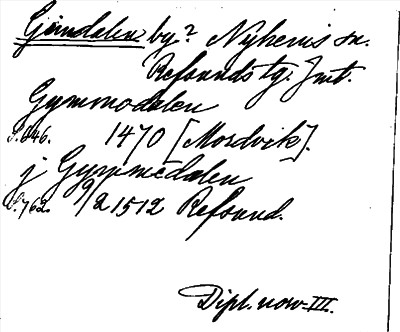 Gimdalen by? Nyhems sn.
Refsunds tg. Jmt.
Gymmodalen
S. 646. 1470 [Mordvik].
j Gymmedalen
S. 762. 9/2 1512 Refsund.
Dipl. norv. III.